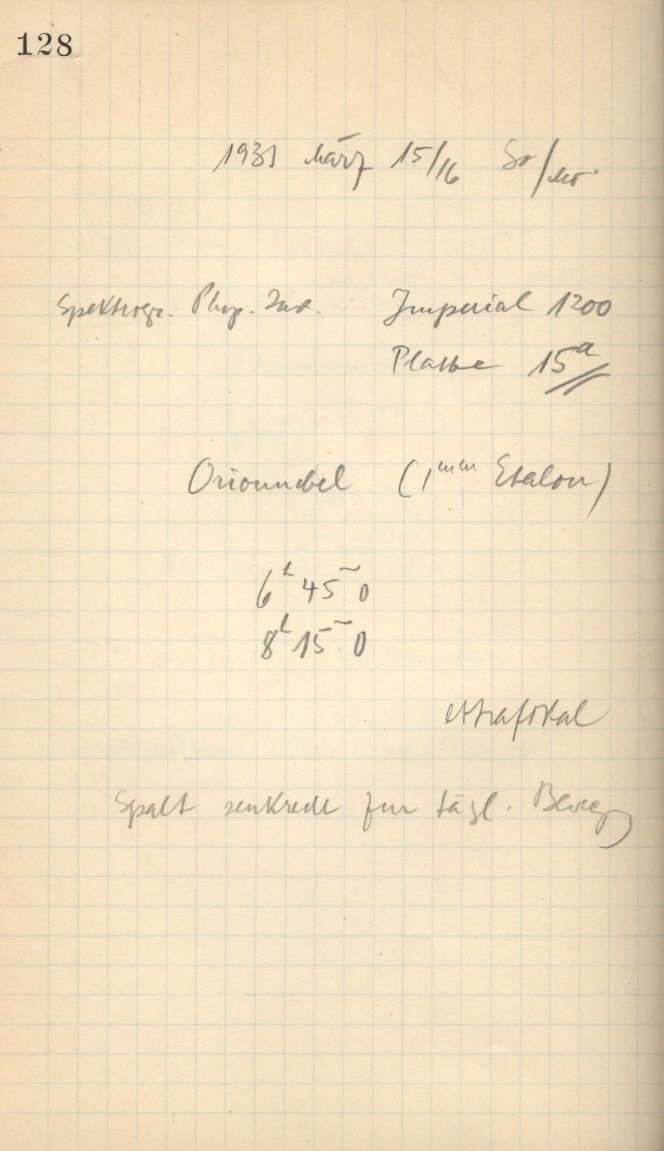 128
1931 März 15/16 So/Mo
Spektrogr. Phys. Inst. Imperial 1200
Platte 15a
Orionnebel (1mm Etalon)
6h 45m 0
8h 15m 0
extrafokal
Spalt senkrecht zur tägl. Beweg